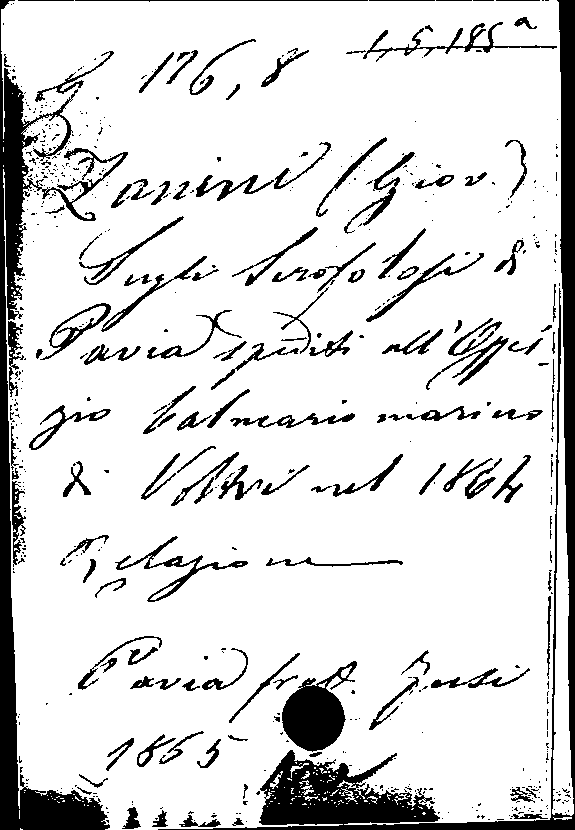 1,5,185ª
G. 176,8
Zanini (Giov.)
Sugli Scrofolosi di
Pavia spediti all'Ospi-
zio balneario marino
di Voltri nel 1864
Relazione
Pavia frat. Fusi
1865